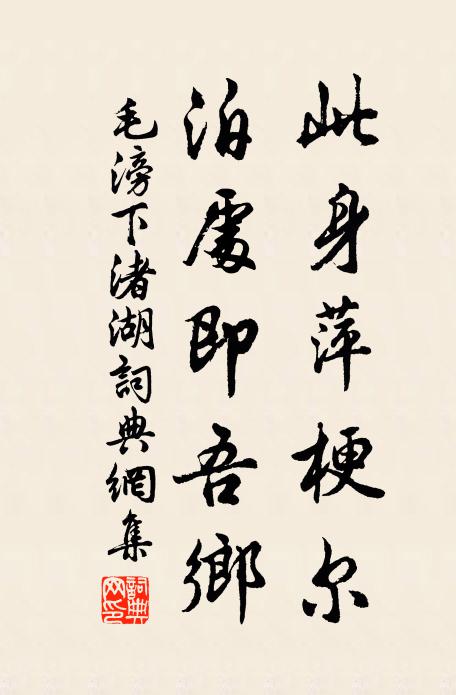 此身萍梗尔
泊處即吾鄉
毛滂下渚湖詞典網集
詞典网印